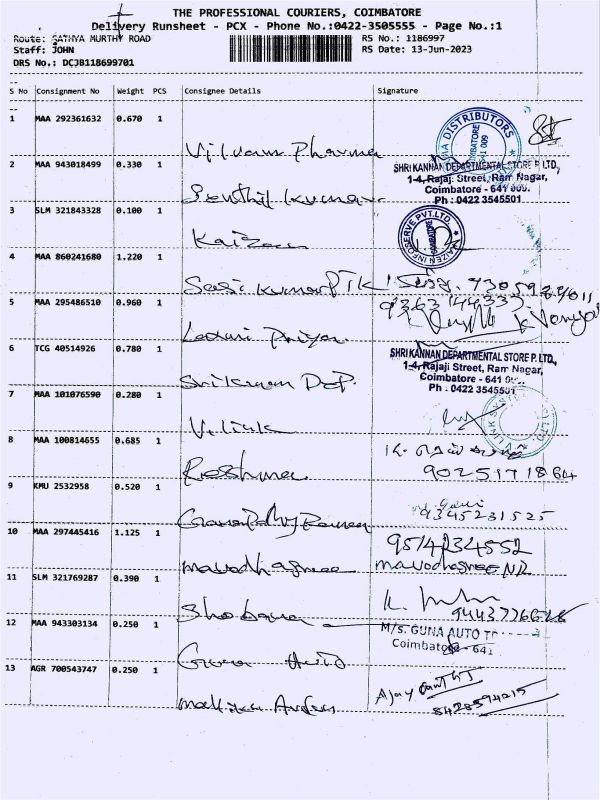 THE PROFESSIONAL COURIERS, COIMBATORE
Delivery Runsheet - PCX - Phone No.:0422-3505555 - Page No.:1
Route: SATHYA MURTHY ROAD RS No.: 1186997
Staff: JOHN RS Date: 13-Jun-2023
DRS No.: DCJB118699701
S No Consignment No Weight PCS Consignee Details Signature
1 MAA 292361632 0.670 1
DISTRIBUTORS
COIMBATORE
Pharma
2 MAA 943018499 0.330 1
SHRI KANNAN DEPARTMENTAL STORE P. LTD,
1-4, Rajaji Street, Ram Nagar,
Coimbatore - 641 009.
Ph : 0422 3545501
Senthil Kumar
3 SLM 321843328 0.100 1
KAIZEN INFOSERVE PVT.LTD
COIMBATORE
Kaizen
4 MAA 860241680 1.220 1
Sasi Kumar
5 MAA 295486510 0.960 1
9363144333
Laxmi Priya
6 TCG 40514926 0.780 1
SHRI KANNAN DEPARTMENTAL STORE P. LTD,
1-4, Rajaji Street, Ram Nagar,
Coimbatore - 641
Ph : 0422 3545501
Dep.
7 MAA 101076590 0.280 1
V.link
8 MAA 100814655 0.685 1
Reshma
9025171864
9 KMU 2532958 0.520 1
9345231525
10 MAA 297445416 1.125 1
9514234552
11 SLM 321769287 0.390 1
Shobana
12 MAA 943303134 0.250 1
M/s. GUNA AUTO
Coimbatore - 641
Guna Auto
13 AGR 700543747 0.250 1
Ajay
8428594215